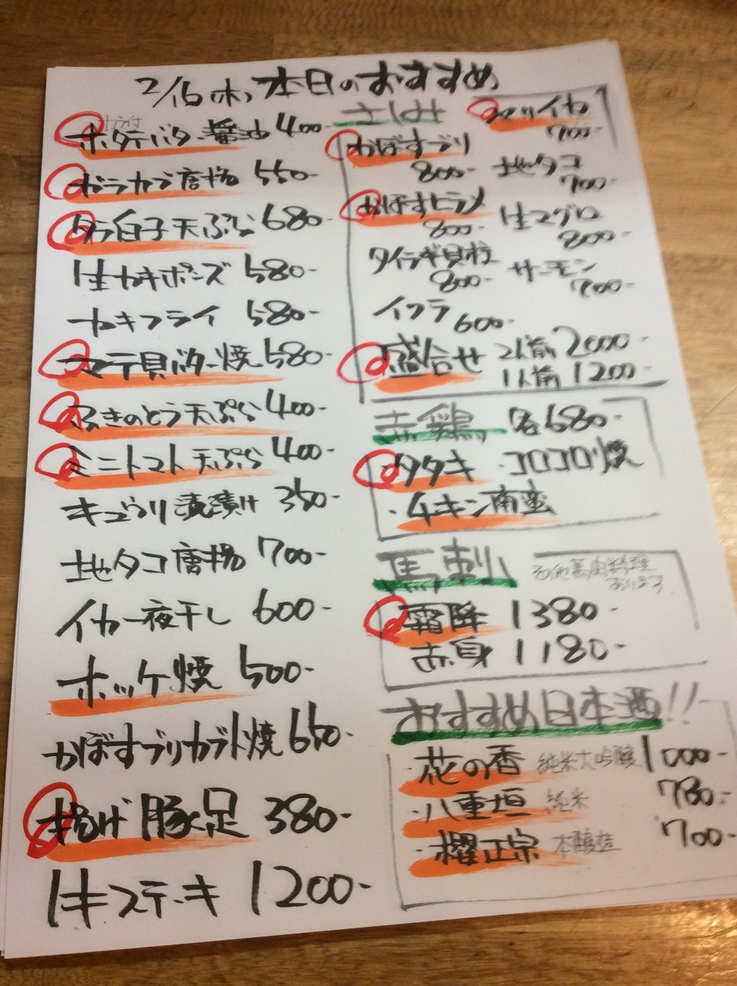 2/16(木)本日のおすすめ
ホタテバター醤油 400-
ガラカブ唐揚 550-
タラ白子天ぷら 680-
生カキポンズ 580-
カキフライ 580-
マテ貝バター焼 580-
ふきのとう天ぷら 400-
ミニトマト天ぷら 400-
キュウリ浅漬け 350-
地タコ唐揚 700-
イカ一夜干し 600-
ホッケ焼 500-
かぼすブリカブト焼 650-
揚げ豚足 380-
1キステーキ 1200-
さしみ
ヤリイカ
700-
かぼすブリ
800-
地タコ
700-
かぼすヒラメ
800-
生マグロ
800-
タイラギ貝柱
800-
サーモン
700-
イクラ
600-
盛合せ 2人前 2000-
1人前 1200-
赤鶏 各680-
・タタキ ・コロコロ焼
・チキン南蛮
馬刺し
その他馬肉料理
あります
・霜降 1380-
・赤身 1180-
おすすめ日本酒!!
・花の香 純米大吟醸 1000-
・八重垣 純米 780-
・櫂正宗 本醸造 700-